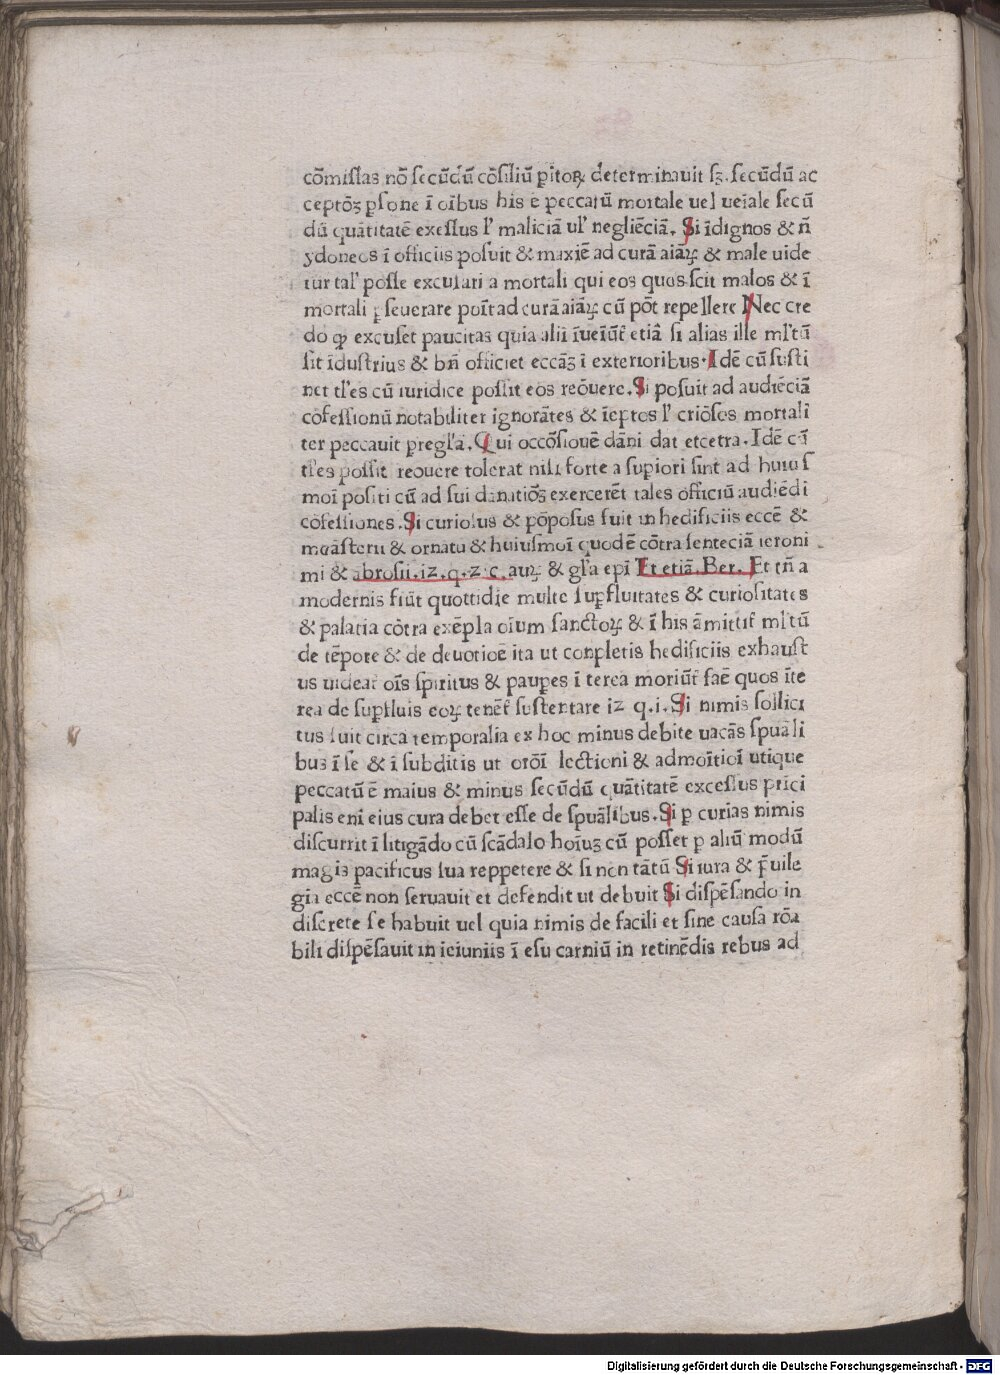 cōmissas nō secūdū cōsiliū ꝑitoꝝ determinauit sꝫ secūdū ac
ceptōꝫ ꝑsone ī oībus his ē peccatū mortale uel ueīale secū
dū quātitatē exessus lꝰ maliciā ulꝰ negliēciā. Si īdignos & ñ
ydoneos ī officiis posuit & maxiē ad curā aiāꝝ & male uide
tur talꝰ posse excusari a mortali qui eos quos scit malos & ī
mortali ꝑseuerare poīt ad curā aiāꝝ cū pōt repellere Nec cre
do ꝙ excuset paucitas quia alii īueiūt̄ etiā si alias ille mlꝰtū
sit īdustrius & bn̄ officiet eccāꝫ ī exterioribus. Idē cū susti
net tlꝰes cū iuridice possit eos reōuere. Si posuit ad audiēciā
cōfessionū notabiliter ignorātes & īeptos lꝰ criōsos mortali
ter peccauit ꝑreglꝰā. Qui occōsiouē dāni dat etcetra. Idē cū
tlꝰes possit reouere tolerat nisi forte a suꝑiori sint ad huius
moī positi cū ad sui dānatiōꝫ exercerēt tales officiū audiēdi
cōfessiones. Si curiosus & pōposus fuit in hedificiis eccē &
moāsterii & ornatu & huiusmoī quodē cōtra senteciā ieroni
mi & abrosii. iz. q. z. c. auꝝ & glꝰa epī Et etiā. Ber. Et tn̄ a
modernis fiūt quottidie multe suꝑfluitates & curiositates
& palatia cōtra exēpla oīum sanctoꝝ & ī his āmittit̄ mlꝰtū
de tēpore & de deuotioē ita ut conpletis hedificiis exhaust
us uideat̄ oīs spiritus & pauꝑes ī terea moriūt̄ faē quos īte
rea de suꝑfluis eoꝝ tenēt̄ sustentare iz q. i. Si nimis sollici
tus fuit circa temporalia ex hoc minus debite uacās spuāli
bus ī se & ī subditis ut orōī lectioni & admoītioī utique
peccatū ē maius & minus secūdū quātitatē excessus prīci
palis enī eius cura debet esse de spuālibus. Si ꝑ curias nimis
discurrit ī litigādo cū scādalo hoīuꝫ cū posset ꝑ aliū modū
magis pacificus sua reppetere & si non tātū Si iura & p̄uile
gia eccē non seruauit et defendit ut debuit Si dispēsando in
discrete se habuit uel quia nimis de facili et sine causa rōa
bili dispēsauit in ieiuniis ī esu carniū in retinēdis rebus ad
Digitalisierung gefördert durch die Deutsche Forschungsgemeinschaft - DFG